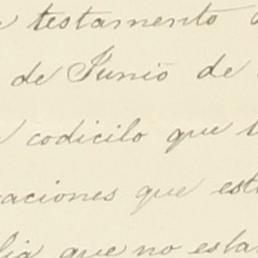 testamento
de Junio de
codicilo que
aciones que est
lia que no esta